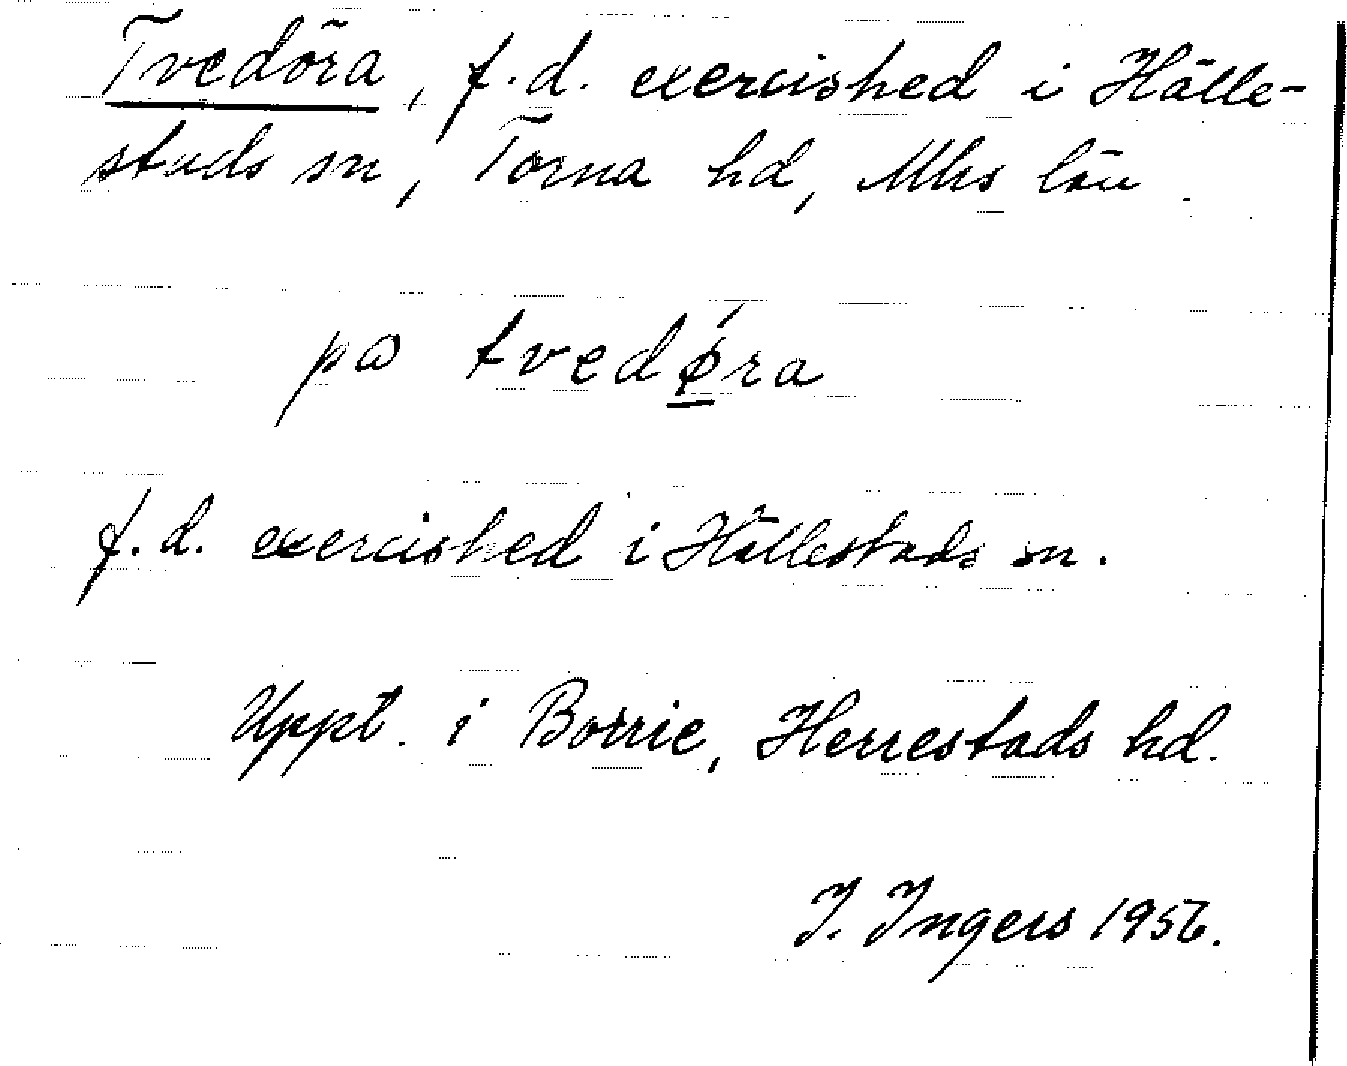 Tvedöra, f.d. exercished i Hälle-
stads sn, Torna hd, Mhs län.
pa tvedǿra
f.d. exercished i Hällestads sn.
Uppt. i Borrie, Herrestads hd.
I. Ingers 1956.